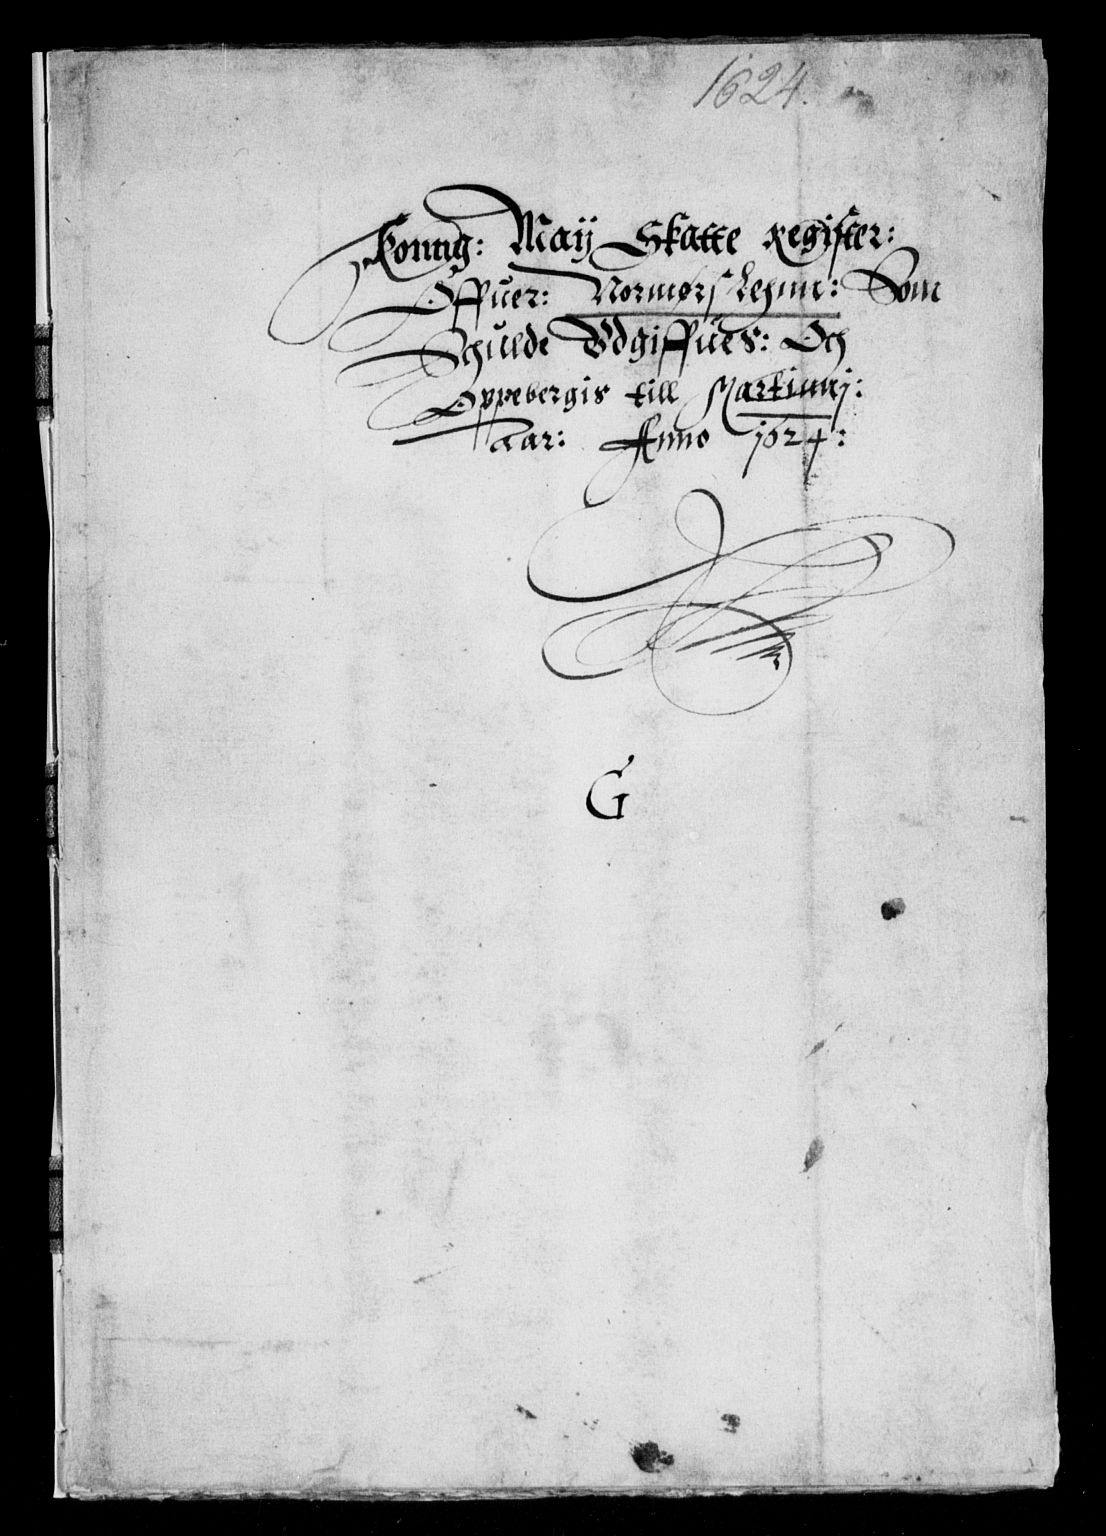 1624.
Konng: Maÿ Skatte Register:
Offuer: Normørs Lehnn: Som
Schulde Vdgiffues: Och
Oppebergis till Martinnj:
Aar: Anno 1624:
G